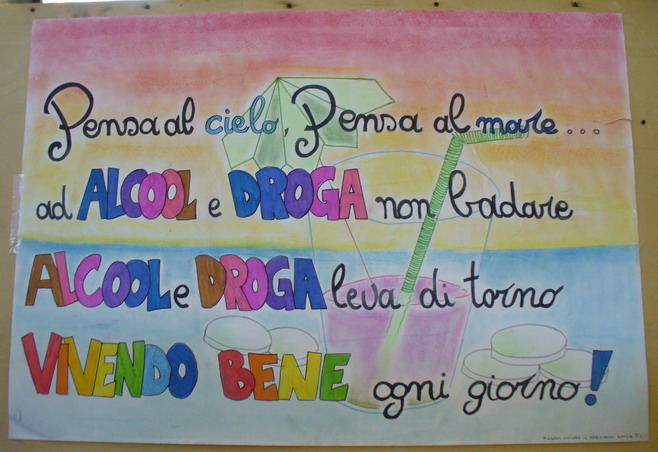 Pensa al cielo, Pensa al mare...
ad ALCOOL e DROGA non badare
ALCOOL e DROGA leva di torno
VIVENDO BENE ogni giorno!